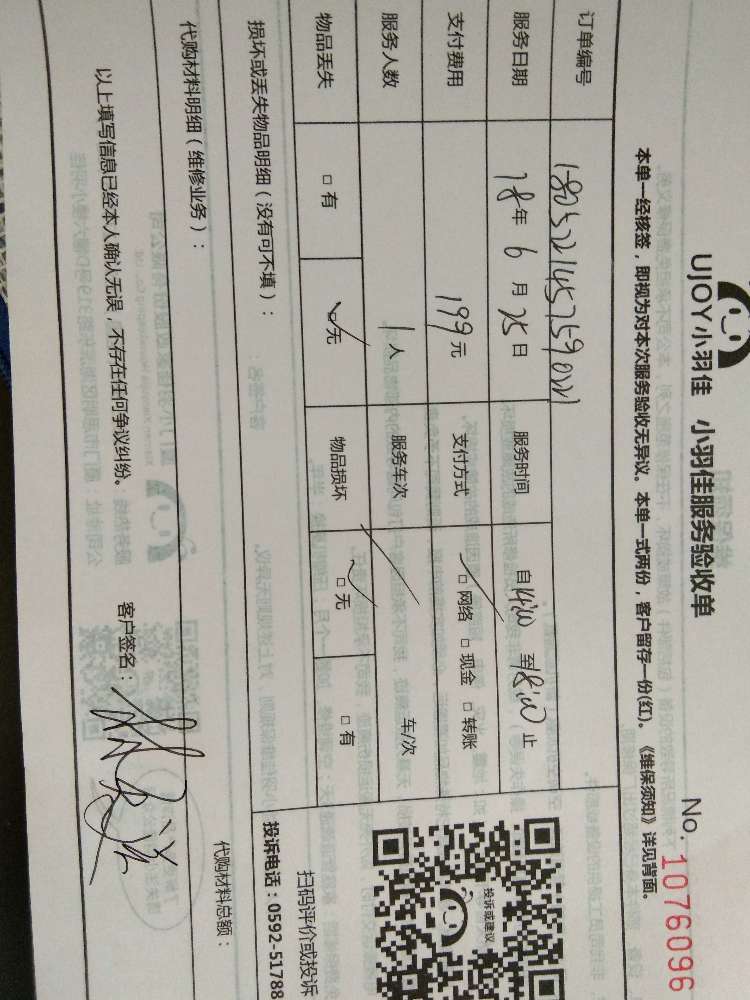 UJOY小羽佳 小羽佳服务验收单
No. 1076096
本单一经核签，即视为对本次服务验收无异议。本单一式两份，客户留存一份(红)。《维保须知》详见背面。
订单编号
服务日期 18年 6月 25日 服务时间 自14:00 至18:00止
支付费用 199元 支付方式 □网络 □现金 □转账
服务人数 1人 服务车次 车/次
物品丢失 □有 □无 物品损坏 □无 □有
损坏或丢失物品明细（没有可不填）：
代购材料明细（维修业务）：
代购材料总额：
以上填写信息已经本人确认无误，不存在任何争议纠纷。
客户签名：
投诉或建议
扫码评价或投诉
投诉电话：0592-51788